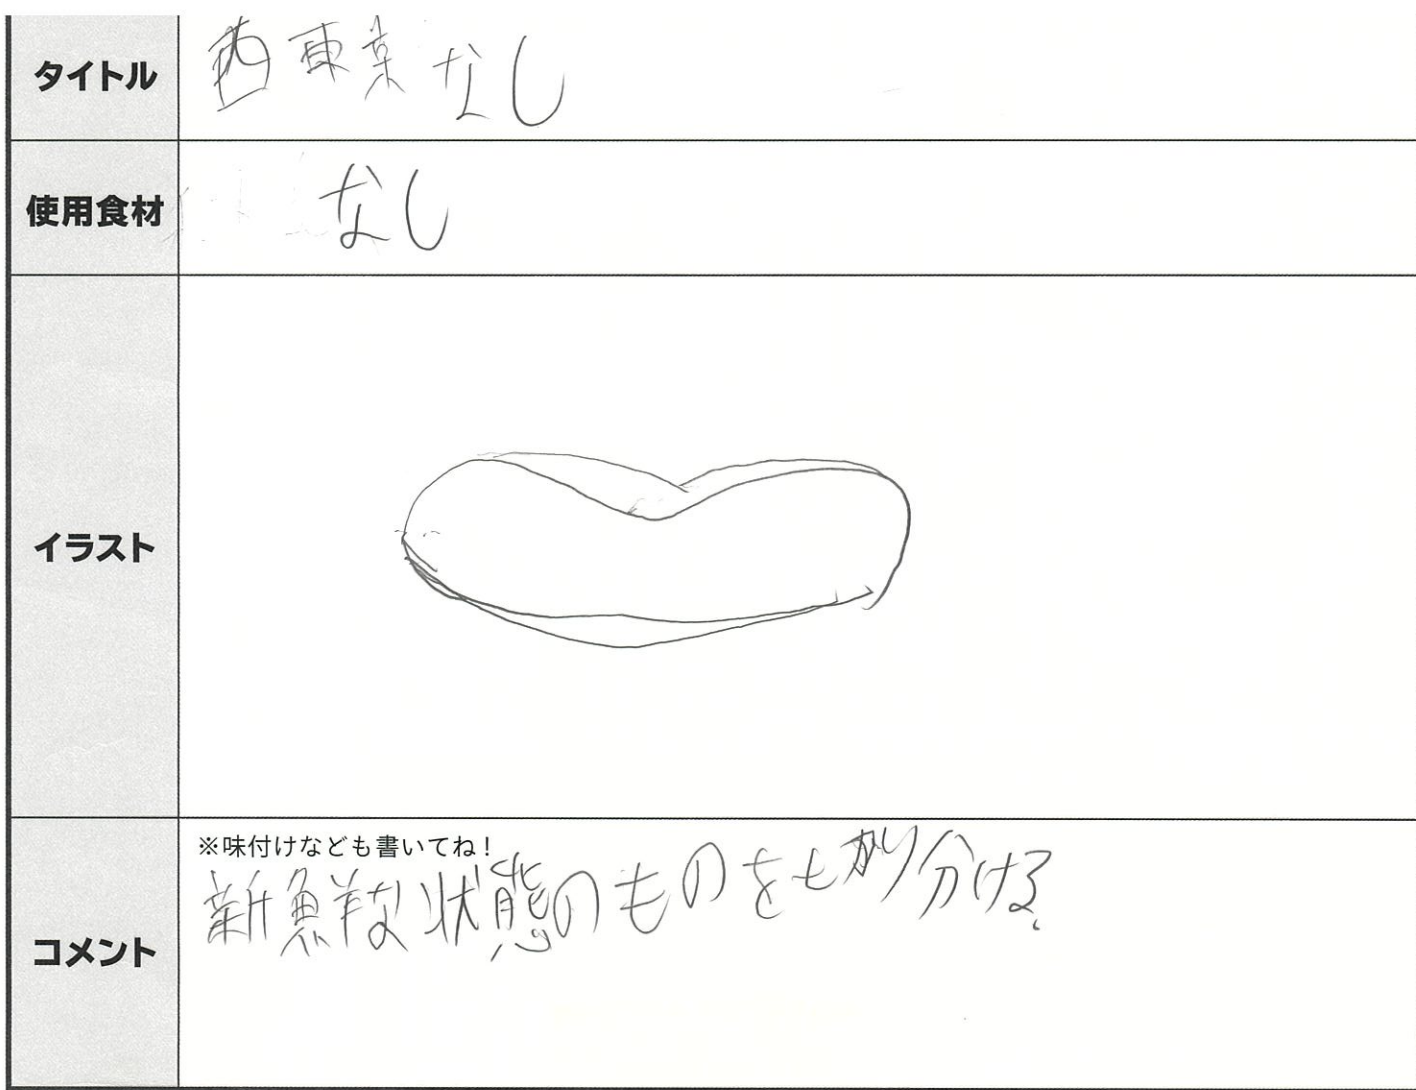 タイトル
西東京なし
使用食材
なし
イラスト
コメント
※味付けなども書いてね！
新鮮な状態のものを切り分ける。